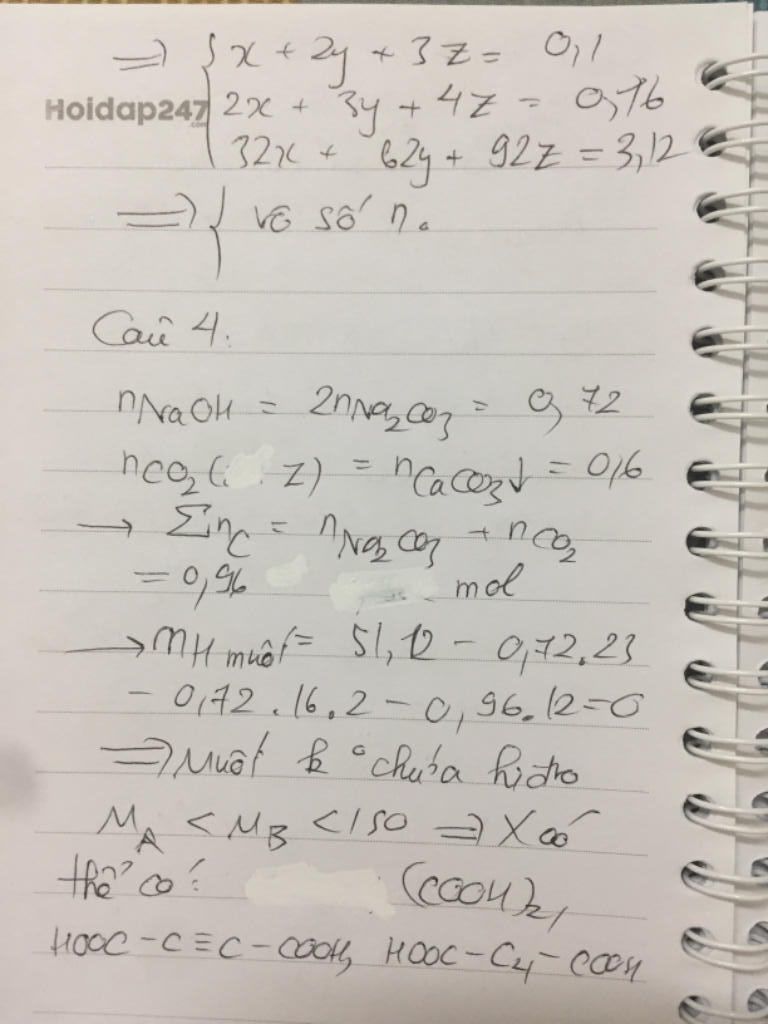 ⇒ { x + 2y + 3z = 0,1
Hoidap247.com 2x + 3y + 4z = 0,16
32x + 62y + 92z = 3,12
⇒ { vô số n.
Câu 4.
nNaOH = 2nNa2CO3 = 0,72
nCO2 ( z) = nCaCO3↓ = 0,6
→ ΣnC = nNa2CO3 + nCO2
= 0,96 mol
→ mH muối = 51,12 - 0,72.23
- 0,72.16.2 - 0,96.12=0
⇒ Muối k° chứa hiđro
MA < MB < 150 ⇒ X có
thể có: (COOH)2,
HOOC-C≡C-COOH, HOOC-C4-COOH